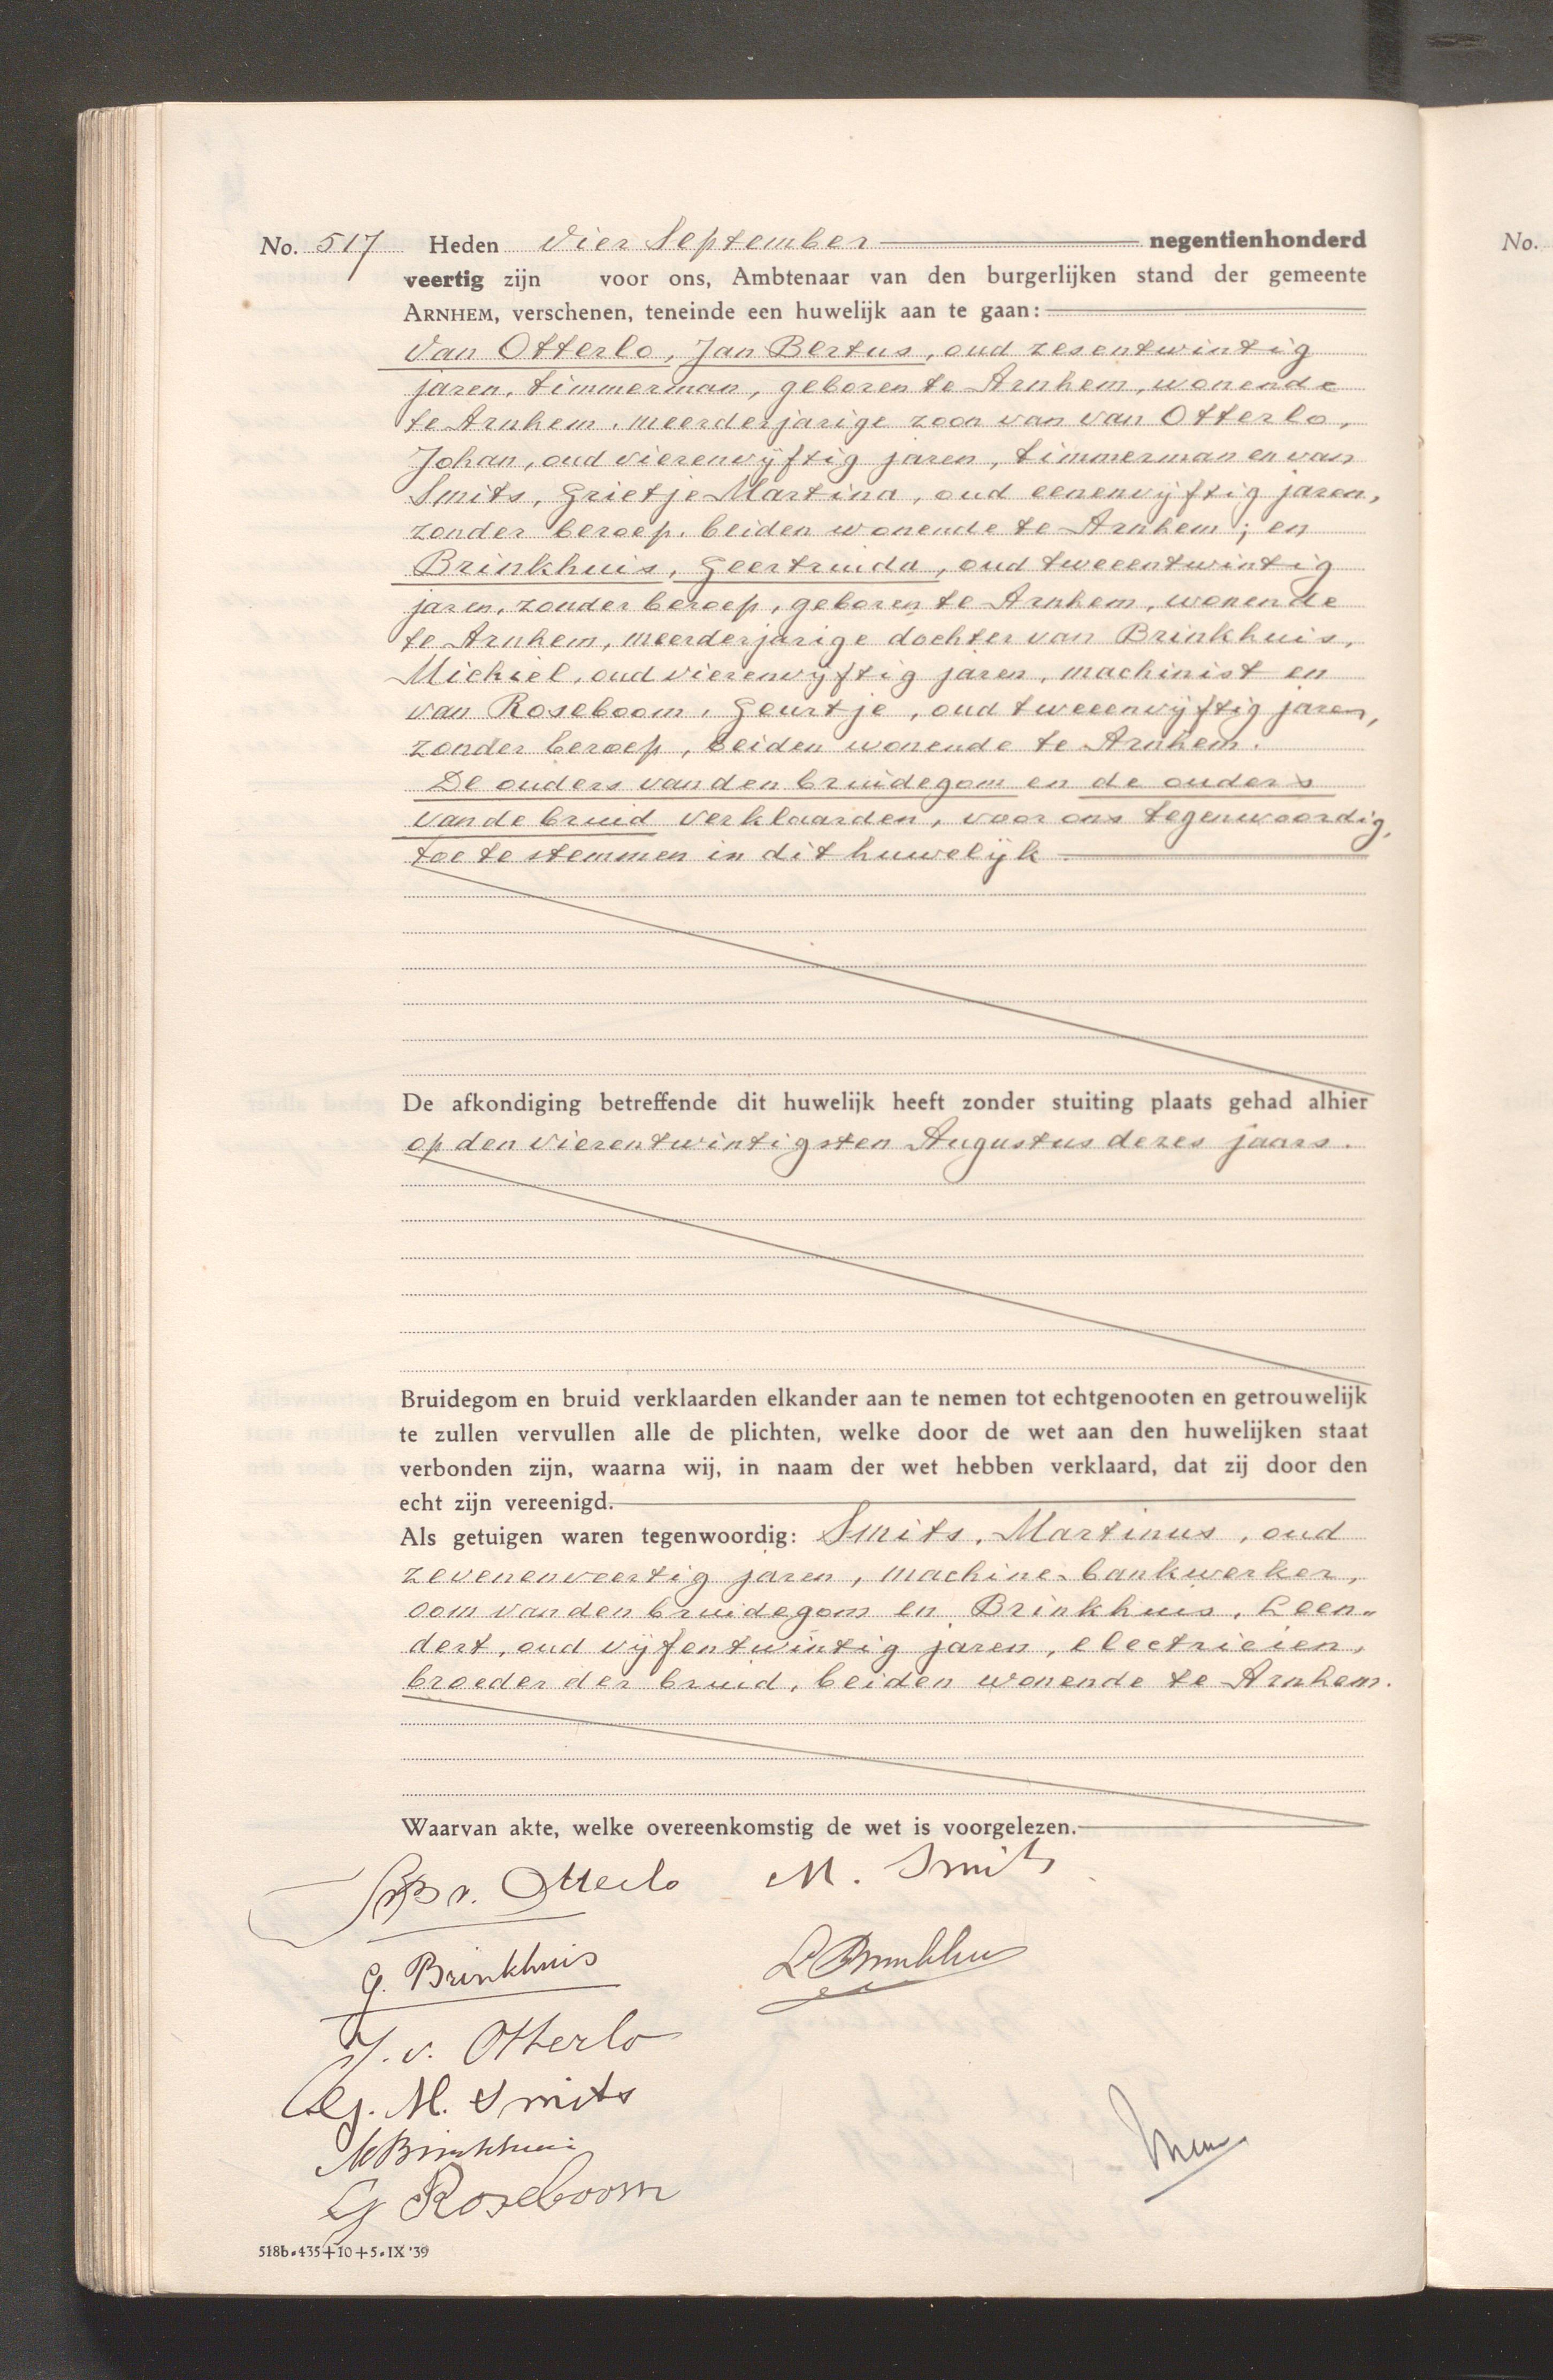 No. 517 Heden vier September negentienhonderd
veertig zijn voor ons, Ambtenaar van den burgerlijken stand der gemeente
ARNHEM, verschenen, teneinde een huwelijk aan te gaan:
van Otterlo, Jan Bertus, oud zesentwintig
jaren, timmerman, geboren te Arnhem, wonende
te Arnhem, meerderjarige zoon van van Otterlo,
Johan, oud vierenvijftig jaren, timmerman en van
Smits, Grietje Martina, oud eenenvijftig jaren,
zonder beroep, beiden wonende te Arnhem; en
Brinkhuis, Geertruida, oud tweeentwintig
jaren, zonder beroep, geboren te Arnhem, wonende
te Arnhem, meerderjarige dochter van Brinkhuis,
Michiel, oud vierenvijftig jaren, machinist en
van Roseboom, Geurtje, oud tweeenvijftig jaren,
zonder beroep, beiden wonende te Arnhem.
De ouders van den bruidegom en de ouders
van de bruid verklaarden, voor ons tegenwoordig,
toe te stemmen in dit huwelijk
De afkondiging betreffende dit huwelijk heeft zonder stuiting plaats gehad alhier
op den vierentwintigsten Augustus dezes jaars.
Bruidegom en bruid verklaarden elkander aan te nemen tot echtgenooten en getrouwelijk
te zullen vervullen alle de plichten, welke door de wet aan den huwelijken staat
verbonden zijn, waarna wij, in naam der wet hebben verklaard, dat zij door den
echt zijn vereenigd.
Als getuigen waren tegenwoordig: Smits, Martinus, oud
zevenenveertig jaren, machine-bankwerker,
oom van den bruidegom en Brinkhuis, Leen-
dert, oud vijfentwintig jaren, electricien,
broeder der bruid, beiden wonende te Arnhem.
Waarvan akte, welke overeenkomstig de wet is voorgelezen.
JB v. Otterlo M. Smits
G. Brinkhuis L Brinkhuis
J. v. Otterlo
G. M. Smits
M Brinkhuis
G Roseboom
518b-435+10+5-IX '39
No.